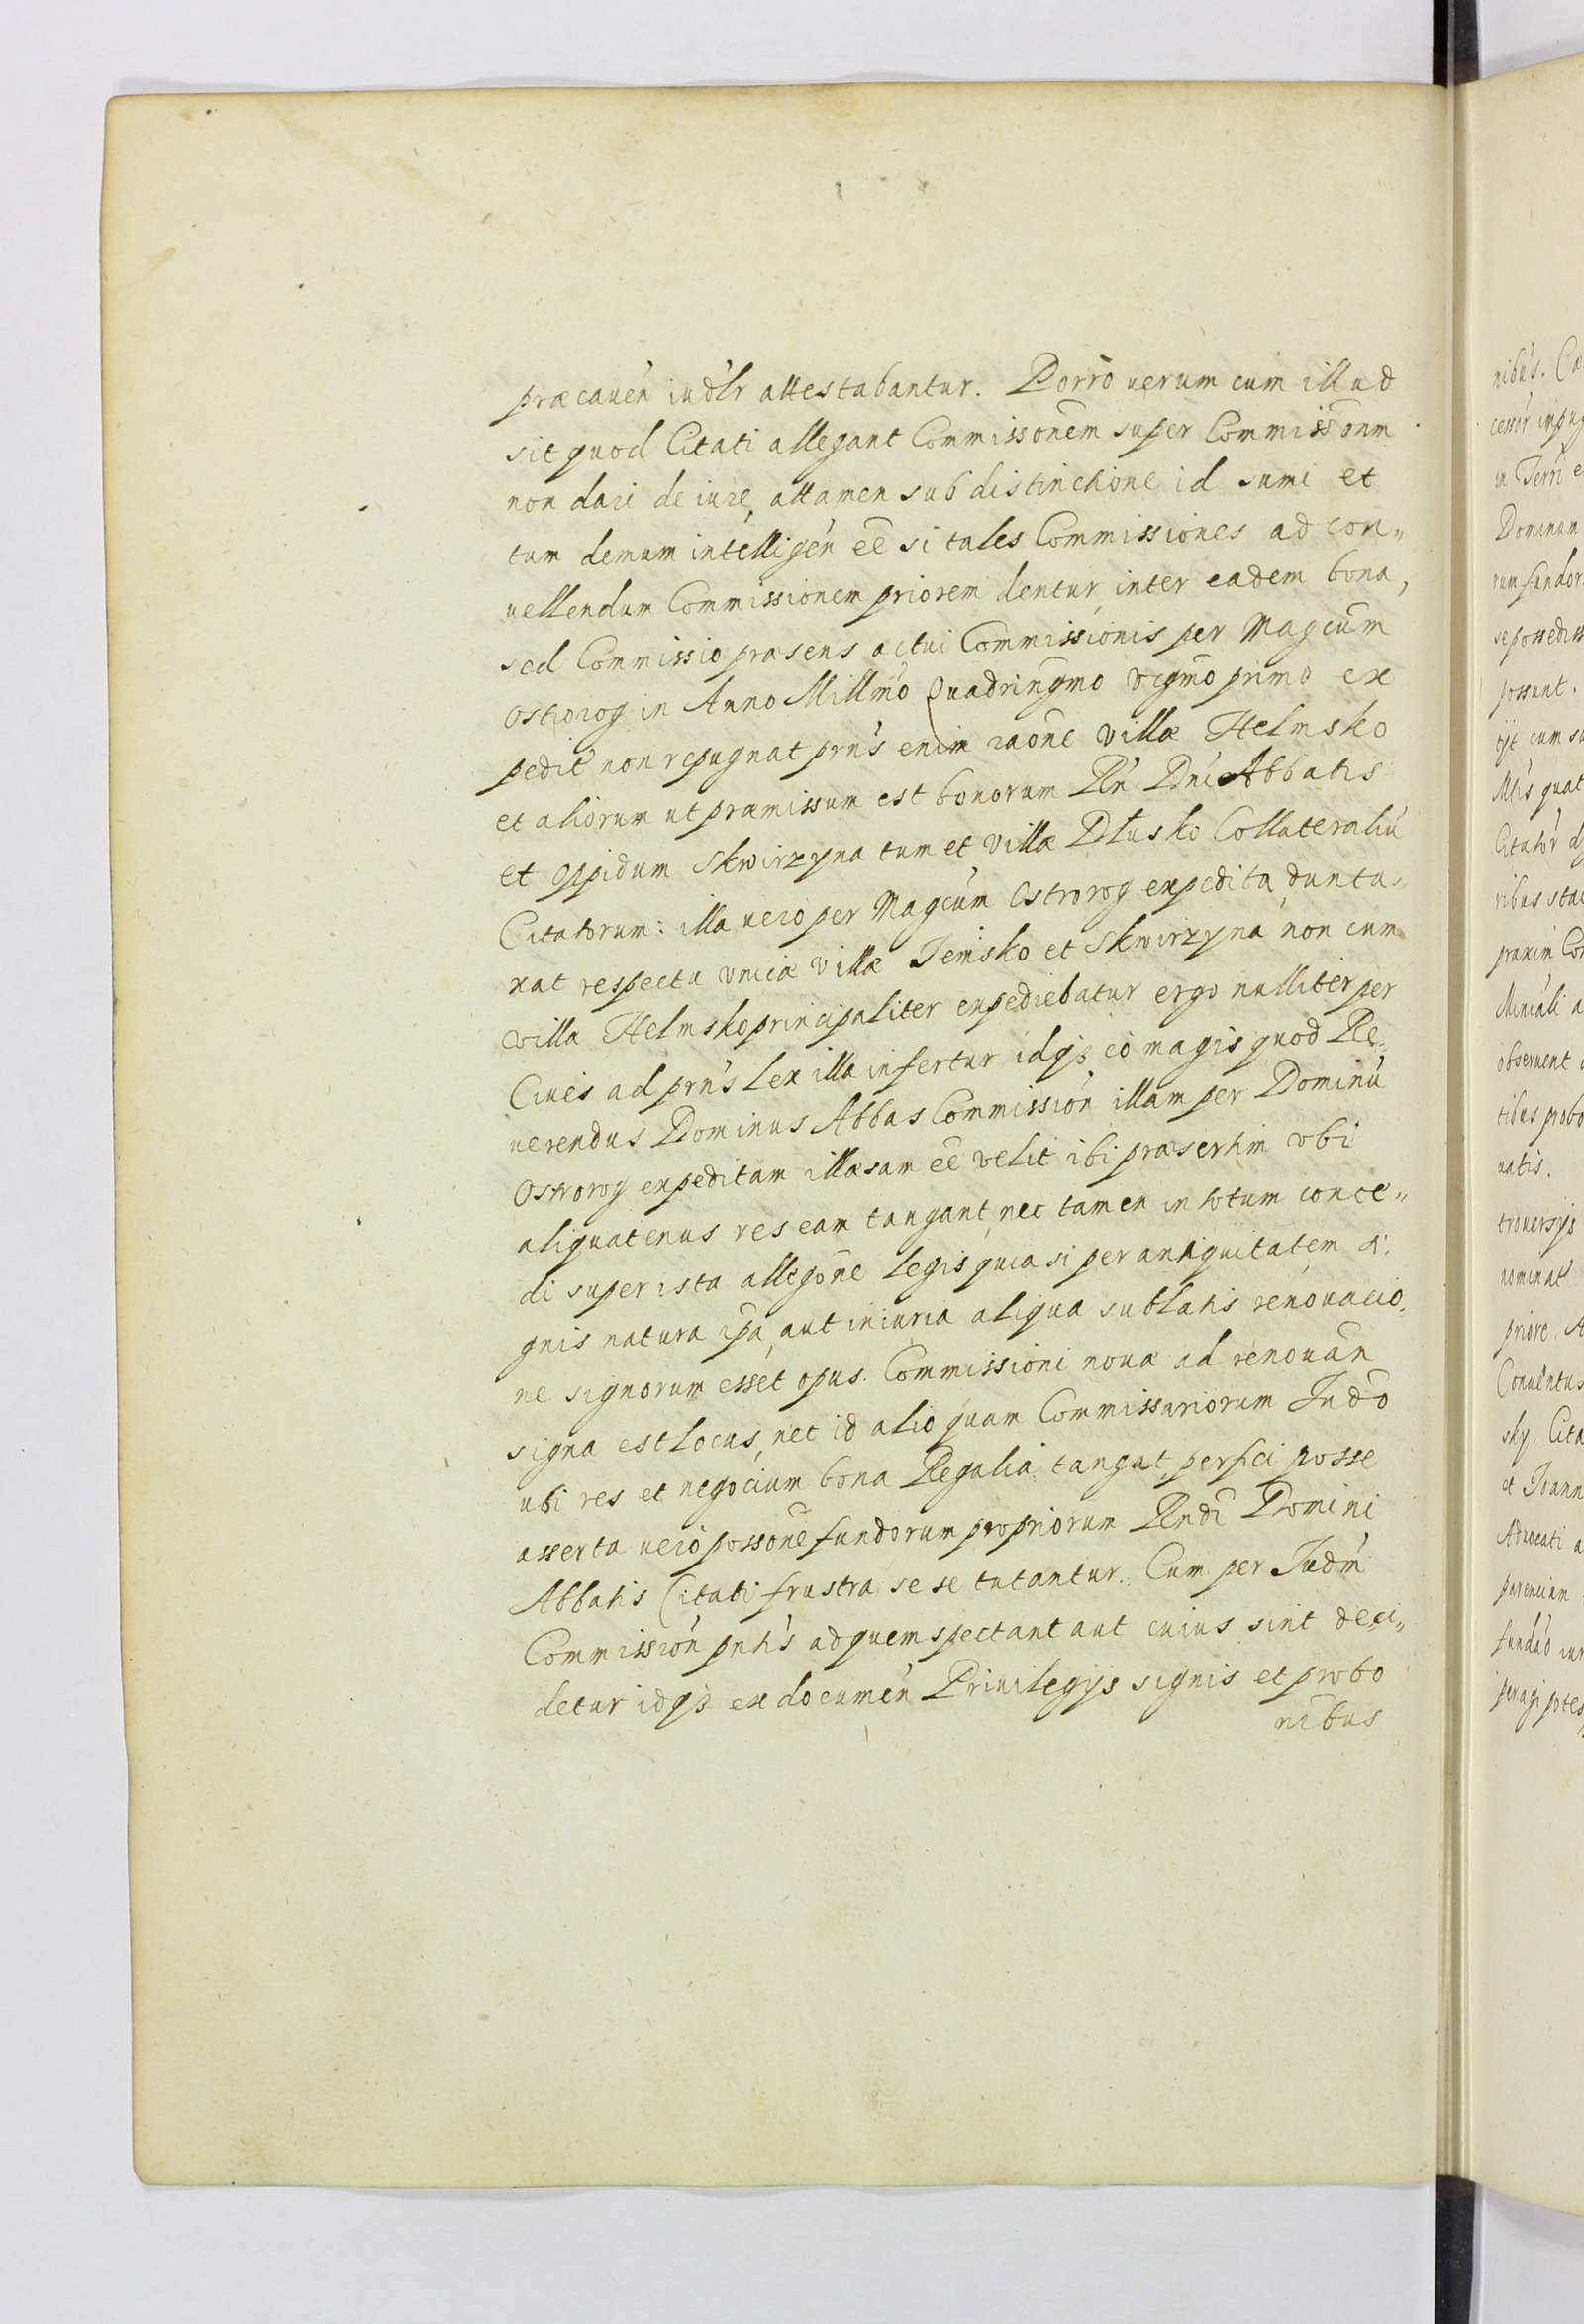 præcauen̄ iudłr attestabantur. Porro uerum cum illud
sit quod Citati allegant Commissonem̄ super Commissonm̄
non dari de iure, attamen sub distinctione id sumi et
tum demum intelligen̄ ee̅ si tales Commissiones ad con„
uellendum Commissionem priorem dentur, inter eadem bona,
sed Commissio præsens actui Commissionis per Magcum̄
Ostrorog in Anno Millmo̅ Quadringmo̅ vcgmo̅ primo ex
pedit̄ non repugnat prn̄s enim raone̅ villæ Helmsko
et aliorum ut præmissum est bonorum Rn̄ Dni̅ Abbatis
et Oppidum Skwirzyna tum et villæ Dłusko Collateraliu̅
Citatorum: illa uero per Magcum̄ Ostrorog expedita, dunta„
xat respectu vnicæ villæ Jemsko et Skwirzyna non cum
villa Helmsko principaliter expediebatur ergo nulliter per
Ciues ad prn̄s Lex illa infertur idqꝫ eo magis quod Re„
uerendus Dominus Abbas Commission̄ illam per Dominu̅
Ostrorog expeditam illæsam ee̅ velit ibi præsertim vbi
aliquatenus res eam tangant, nec tamen in totum conce„
di super ista allegone̅ legis quia si per antiquitatem &.
gnis natura ipa̅, aut iniuria aliqua sublatis renouacio„
ne signorum esset opus. Commissioni nouæ ad renouan̄
signa est locus, nec id alio quam Commissariorum Judo̅
ubi res et negocium bona Regalia tangat, perfici posse
asserta uero possone̅ fundorum propriorum Rndi̅ Domini
Abbatis Citati frustra se se tutantur. Cum per Judm̄
Commission̄ pnti̅s ad quem spectant aut cuius sint deci„
detur idqꝫ ex documen̄ Priuilegijs signis et probo
nibus
nibus.
Dominum
possunt.
nominat
priore.
Conuentus
Aduocati